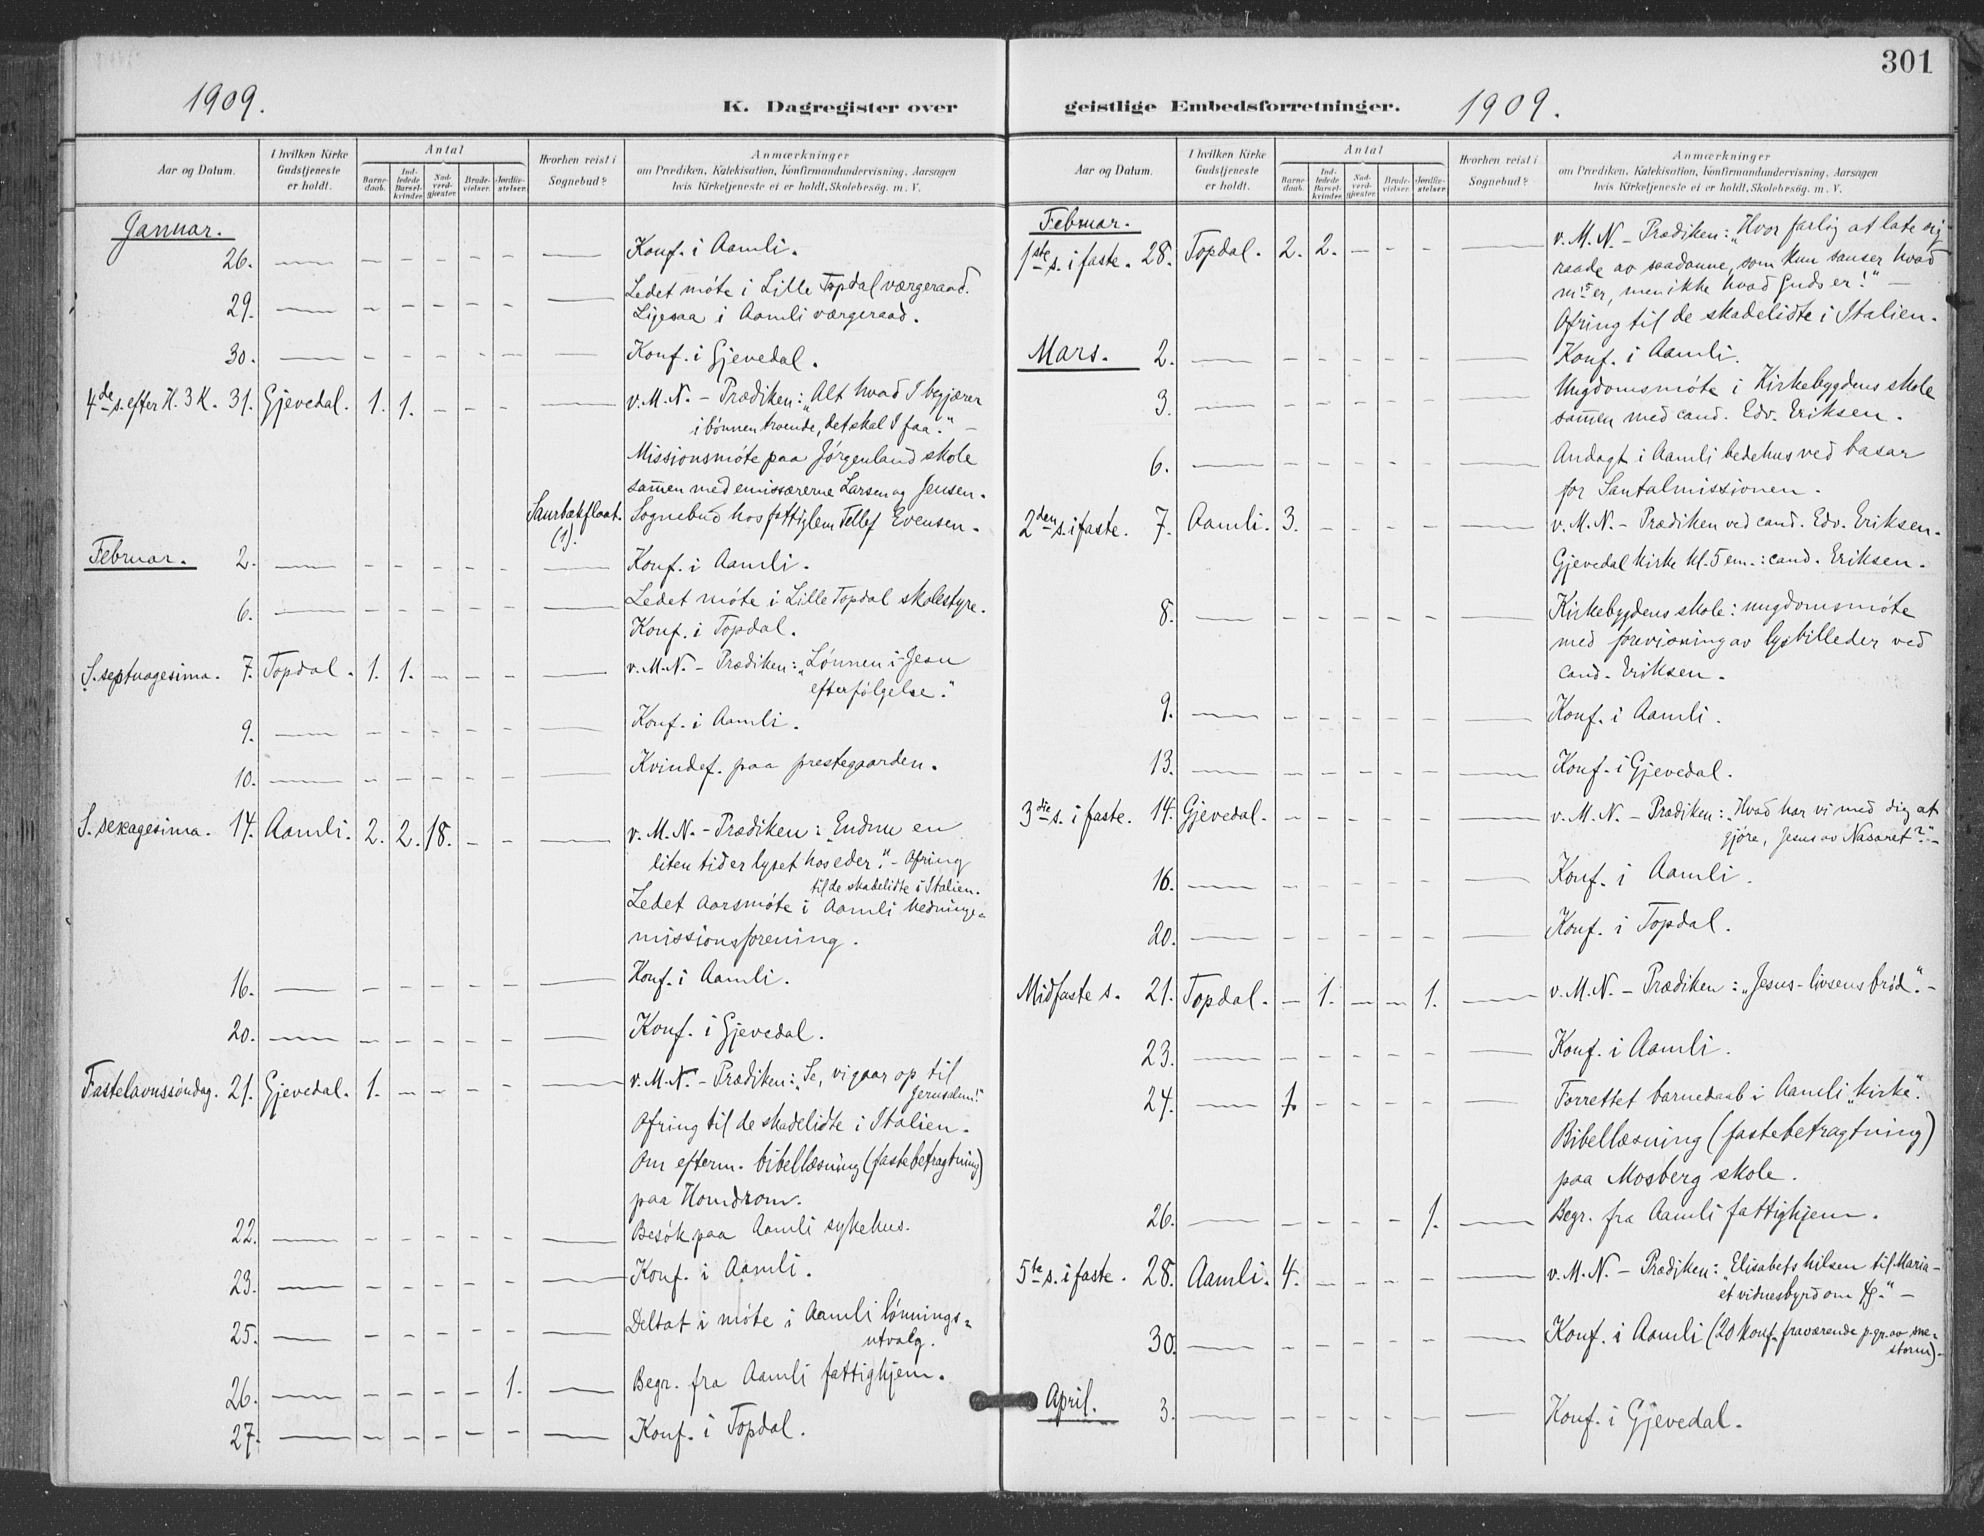 1909.
K. Dagregister over
Aar og Datum.
I hvilken Kirke Gudstjeneste er holdt.
Antal
Barnedaab.
Indledede Barselkvinder.
Nadverdgjæster.
Brudevielser.
Jordfæstelser.
Hvorhen reist i Sognebud?
Anmærkninger
om Prædiken, Katekisation, Konfirmandundervisning, Aarsagen
hvis Kirketjeneste ei er holdt, Skolebesøg. m. V.
Januar.
26. — – – – – – — Konf. i Aamli.
29. — – – – – – — Ledet møte i Lille Topdal værgeraad.
Ligesaa i Aamli værgeraad.
30. — – – – – – — Konf. i Gjevedal.
4de s. efter H. 3 K. 31. Gjevedal. 1. 1. – – – — v. M. N. – Prædiken: „Alt hvad I begjærer
i bønnen troende, det skal I faa." –
Missionsmøte paa Jørgenland skole
sam̄en med emissærerne Larsen og Jensen.
Saurbækfloat. Sognebud hos fattiglem Tellef Evensen.
(1).
Februar. 2. — – – – – – — Konf. i Aamli.
6. — – – – – – — Ledet møte i Lille Topdal skolestyre.
Konf. i Topdal.
S. septuagesima. 7. Topdal. 1. 1. – – – — v. M. N. – Prædiken: „Lønnen i Jesu
efterfølgelse."
9. — – – – – – — Konf. i Aamli.
10. — – – – – – — Kvindef. paa prestegaarden.
S. sexagesima. 14. Aamli. 2. 2. 18. – – — v. M. N. – Prædiken: „Endnu en
liten tid er lyset hos eder". – Ofring
til de skadelidte i Italien.
Ledet aarsmøte i Aamli hedninge=
missionsforening.
16. — – – – – – — Konf. i Aamli.
20. — – – – – – — Konf. i Gjevedal.
Fastelavnssøndag. 21. Gjevedal. 1. – – – – — v. M. N. – Prædiken: „Se, vi gaar op til
Jerusalem!"
Ofring til de skadelidte i Italien.
Om efterm. bibellæsning (fastebetragtning)
paa Homdrom.
22. — – – – – – — Besøk paa Aamli sykehus.
23. — – – – – – — Konf. i Aamli.
25. — – – – – – — Deltat i møte i Aamli lønnings=
utvalg.
26. — – – – – 1. — Begr. fra Aamli fattighjem.
27. — – – – – – — Konf. i Topdal.
301
geistlige Embedsforretninger.
1909.
Aar og Datum.
I hvilken Kirke Gudstjeneste er holdt.
Antal
Barnedaab.
Indledede Barselkvinder.
Nadverdgjæster.
Brudevielser.
Jordfæstelser.
Hvorhen reist i Sognebud?
Anmærkninger
om Prædiken, Katekisation, Konfirmandundervisning, Aarsagen
hvis Kirketjeneste ei er holdt, Skolebesøg. m. V.
Februar.
1ste s. i faste. 28. Topdal. 2. 2. – – – — v. M. N. – Prædiken: „Hvor farlig at late sig
raade av saadanne, som kun sanser hvad
m's er, men ikke hvad Guds er!" –
Ofring til de skadelidte i Italien.
Mars. 2. — – – – – – — Konf. i Aamli.
3. — – – – – – — Ungdomsmøte i Kirkebygdens skole
sam̄en med cand. Edv. Eriksen.
6. — – – – – – — Andagt i Aamli bedehus ved basar
for Santalmissionen.
2den s. i faste. 7. Aamli. 3. – – – – — v. M. N. – Prædiken ved cand. Edv. Eriksen.
Gjevedal kirke kl. 5 em.: cand. Eriksen.
8. — – – – – – — Kirkebygdens skole: ungdomsmøte
med forevisning av lysbilleder ved
cand. Eriksen.
9. — – – – – – — Konf. i Aamli.
13. — – – – – – — Konf. i Gjevedal.
3die s. i faste. 14. Gjevedal. – – – – – — v. M. N. – Prædiken: „Hvad har vi med dig at
gjøre, Jesus av Nasaret?" –
16. — – – – – – — Konf. i Aamli.
20. — – – – – – — Konf. i Topdal.
Midfaste s. 21. Topdal. – 1. – – 1. — v. M. N. – Prædiken: „Jesus – livsens brød". –
23. — – – – – – — Konf. i Aamli.
24. — 1. – – – – — Forrettet barnedaab i Aamli „kirke".
Bibellæsning (fastebetragtning)
paa Mosberg skole.
26. — – – – – 1. — Begr. fra Aamli fattighjem.
5te s. i faste. 28. Aamli. 4. – – – – — v. M. N. – Prædiken: „Elisabets hilsen til Maria –
et vidnesbyrd om
30. — – – – – – — Konf. i Aamli (20 konf. fraværende p. gr. av sne=
storm).
April. 3. — – – – – – — Konf. i Gjevedal.